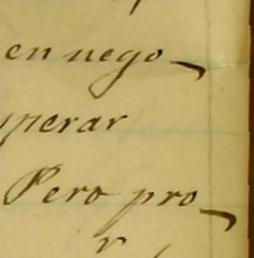 en nego-
perar
Pero pro-